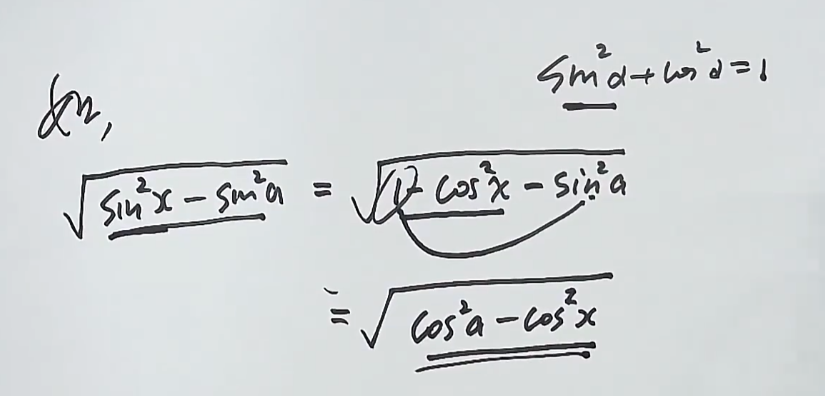 sin²α + cos²α = 1
√(sin²x - sin²a) = √(1 - cos²x - sin²a)
= √(cos²a - cos²x)